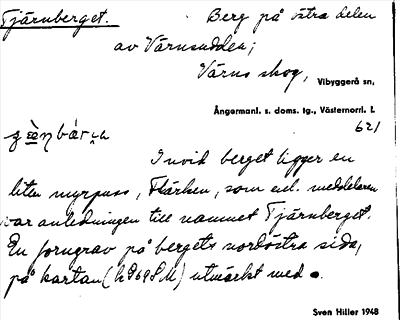 Tjärnberget. Berg på östra delen
av Värnsudden;
Värns skog, Vibyggerå sn,
Ångermanl. s. doms. tg., Västernorrl. l.
621
Invid berget ligger en
liten myrpuss, Tjärlsen, som enl. meddelaren
var anledningen till namnet Tjärnberget.
En forngrav på bergets nordöstra sida,
på kartan utmärkt med ●.
Sven Hiller 1948